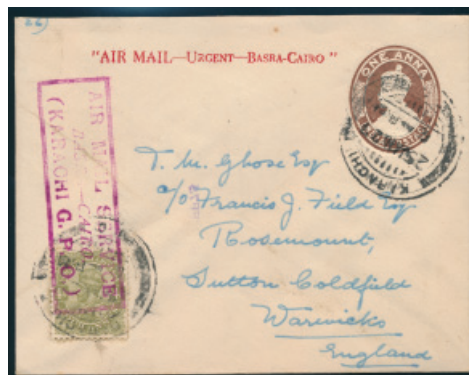 "AIR MAIL—URGENT—BASRA-CAIRO"
ONE ANNA
KARACHI
AIR MAIL SERVICE
BASRA - CAIRO
(KARACHI G. P. O.)
T. M. Ghose Esq
c/o Francis J. Field Esq
Rosemount,
Sutton Coldfield
Warwicks
England